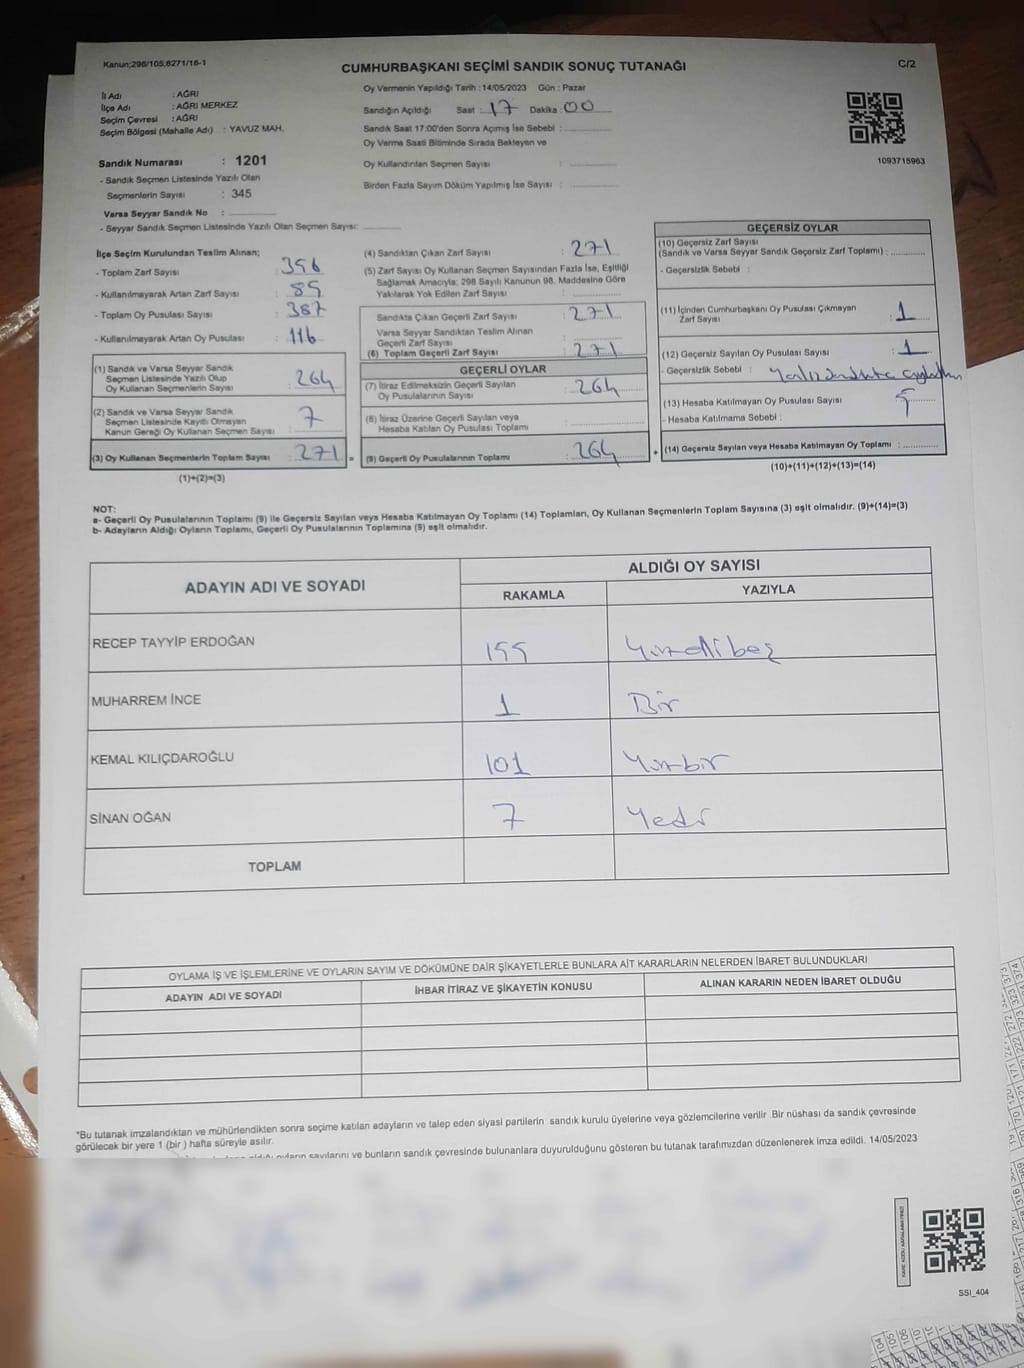 Kanun;298/105;6271/16-1
CUMHURBAŞKANI SEÇİMİ SANDIK SONUÇ TUTANAĞI
C/2
İl Adı : AĞRI
İlçe Adı : AĞRI MERKEZ
Seçim Çevresi : AĞRI
Seçim Bölgesi (Mahalle Adı) : YAVUZ MAH.
Oy Vermenin Yapıldığı Tarih : 14/05/2023 Gün : Pazar
Sandığın Açıldığı Saat : 17 Dakika : 00
Sandık Saat 17:00'den Sonra Açımış İse Sebebi :
Oy Verme Saati Bitiminde Sırada Bekleyen ve
Oy Kullandırılan Seçmen Sayısı :
Birden Fazla Sayım Döküm Yapılmış İse Sayısı :
1093715963
Sandık Numarası : 1201
- Sandık Seçmen Listesinde Yazılı Olan
Seçmenlerin Sayısı : 345
Varsa Seyyar Sandık No :
- Seyyar Sandık Seçmen Listesinde Yazılı Olan Seçmen Sayısı:
İlçe Seçim Kurulundan Teslim Alınan;
- Toplam Zarf Sayısı : 356
- Kullanılmayarak Artan Zarf Sayısı : 85
- Toplam Oy Pusulası Sayısı : 387
- Kullanılmayarak Artan Oy Pusulası : 116
(1) Sandık ve Varsa Seyyar Sandık
Seçmen Listesinde Yazılı Olup
Oy Kullanan Seçmenlerin Sayısı : 264
(2) Sandık ve Varsa Seyyar Sandık
Seçmen Listesinde Kayıtlı Olmayan
Kanun Gereği Oy Kullanan Seçmen Sayısı : 7
(3) Oy Kullanan Seçmenlerin Toplam Sayısı : 271
(1)+(2)=(3)
(4) Sandıktan Çıkan Zarf Sayısı : 271
(5) Zarf Sayısı Oy Kullanan Seçmen Sayısından Fazla İse, Eşitliği
Sağlamak Amacıyla; 298 Sayılı Kanunun 98. Maddesine Göre
Yakılarak Yok Edilen Zarf Sayısı :
Sandıkta Çıkan Geçerli Zarf Sayısı : 271
Varsa Seyyar Sandıktan Teslim Alınan
Geçerli Zarf Sayısı :
(6) Toplam Geçerli Zarf Sayısı : 271
GEÇERLİ OYLAR
(7) İtiraz Edilmeksizin Geçerli Sayılan
Oy Pusulalarının Sayısı : 264
(8) İtiraz Üzerine Geçerli Sayılan veya
Hesaba Katılan Oy Pusulası Toplamı :
= (9) Geçerli Oy Pusulalarının Toplamı : 264
GEÇERSİZ OYLAR
(10) Geçersiz Zarf Sayısı
(Sandık ve Varsa Seyyar Sandık Geçersiz Zarf Toplamı) :
- Geçersizlik Sebebi :
(11) İçinden Cumhurbaşkanı Oy Pusulası Çıkmayan
Zarf Sayısı : 1
(12) Geçersiz Sayılan Oy Pusulası Sayısı : 1
- Geçersizlik Sebebi :
(13) Hesaba Katılmayan Oy Pusulası Sayısı : 5
- Hesaba Katılmama Sebebi :
+ (14) Geçersiz Sayılan veya Hesaba Katılmayan Oy Toplamı :
(10)+(11)+(12)+(13)=(14)
NOT:
a- Geçerli Oy Pusulalarının Toplamı (9) ile Geçersiz Sayılan veya Hesaba Katılmayan Oy Toplamı (14) Toplamları, Oy Kullanan Seçmenlerin Toplam Sayısına (3) eşit olmalıdır. (9)+(14)=(3)
b- Adayların Aldığı Oyların Toplamı, Geçerli Oy Pusulalarının Toplamına (9) eşit olmalıdır.
ADAYIN ADI VE SOYADI
ALDIĞI OY SAYISI
RAKAMLA YAZIYLA
RECEP TAYYİP ERDOĞAN 155 Yüzellibeş
MUHARREM İNCE 1 Bir
KEMAL KILIÇDAROĞLU 101 Yüzbir
SİNAN OĞAN 7 Yedi
TOPLAM
OYLAMA İŞ VE İŞLEMLERİNE VE OYLARIN SAYIM VE DÖKÜMÜNE DAİR ŞİKAYETLERLE BUNLARA AİT KARARLARIN NELERDEN İBARET BULUNDUKLARI
ADAYIN ADI VE SOYADI İHBAR İTİRAZ VE ŞİKAYETİN KONUSU ALINAN KARARIN NEDEN İBARET OLDUĞU
*Bu tutanak imzalandıktan ve mühürlendikten sonra seçime katılan adayların ve talep eden siyasi partilerin sandık kurulu üyelerine veya gözlemcilerine verilir .Bir nüshası da sandık çevresinde
görülecek bir yere 1 (bir ) hafta süreyle asılır.
sayılarını ve bunların sandık çevresinde bulunanlara duyurulduğunu gösteren bu tutanak tarafımızdan düzenlenerek imza edildi. 14/05/2023
SSI_404